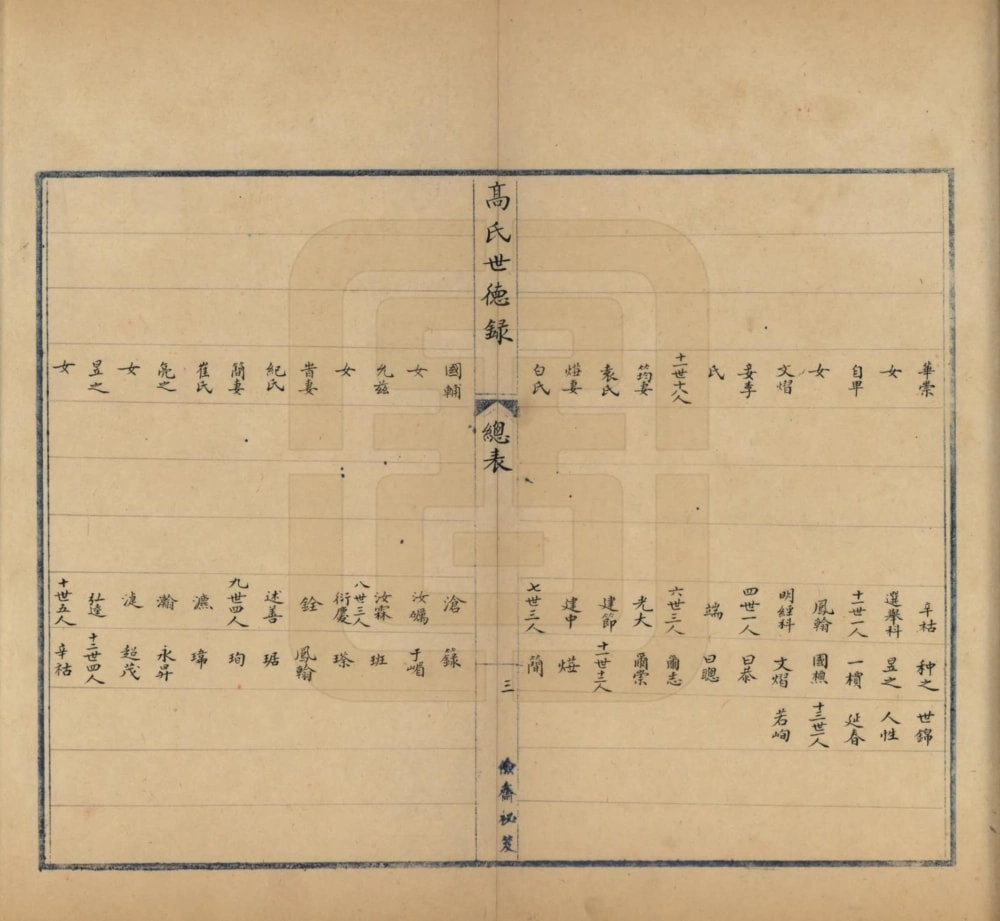 華棠
女
自卑
女
文熠
妾李
氏
十一世十八人
筠妻
袁氏
熞妻
白氏
辛祜 种之 世錦
選舉科 昱之 人性
十一世一人 一檟 延春
鳳翰 國樔 十三世一人
明經科 文熠 若峋
四世一人 曰恭
端 曰聰
六世三人 爾志
光大 爾棠
建節 十一世十二人
建中 熞
七世三人 簡
高氏世德録
總表
三
儉齋祕笈
國輔
女
允茲
女
耆妻
紀氏
簡妻
崔氏
亮之
女
昱之
女
滄 籙
汝礪 于嵋
汝霖 班
八世三人
衍慶 瑹
銓 鳳翰
述善 琚
九世四人 珣
瀌 瑋
瀚 永昇
漣 超茂
弘逵 十二世四人
十世五人 辛祜